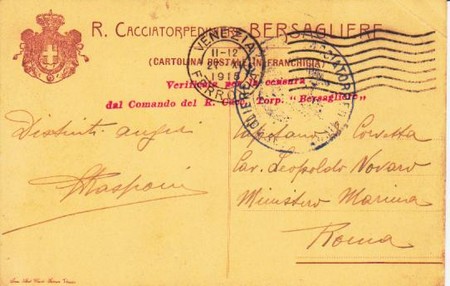 R. CACCIATORPEDINIERE BERSAGLIERE
(CARTOLINA POSTALE IN FRANCHIGIA)
VENEZIA
11-12
1915
FERROVIA
Verificato per la censura
dal Comando del R. Cacc. Torp. "Bersagliere"
Distinti auguri
Capitano Corvetta
Cav. Leopoldo Novaro
Ministero Marina
Roma